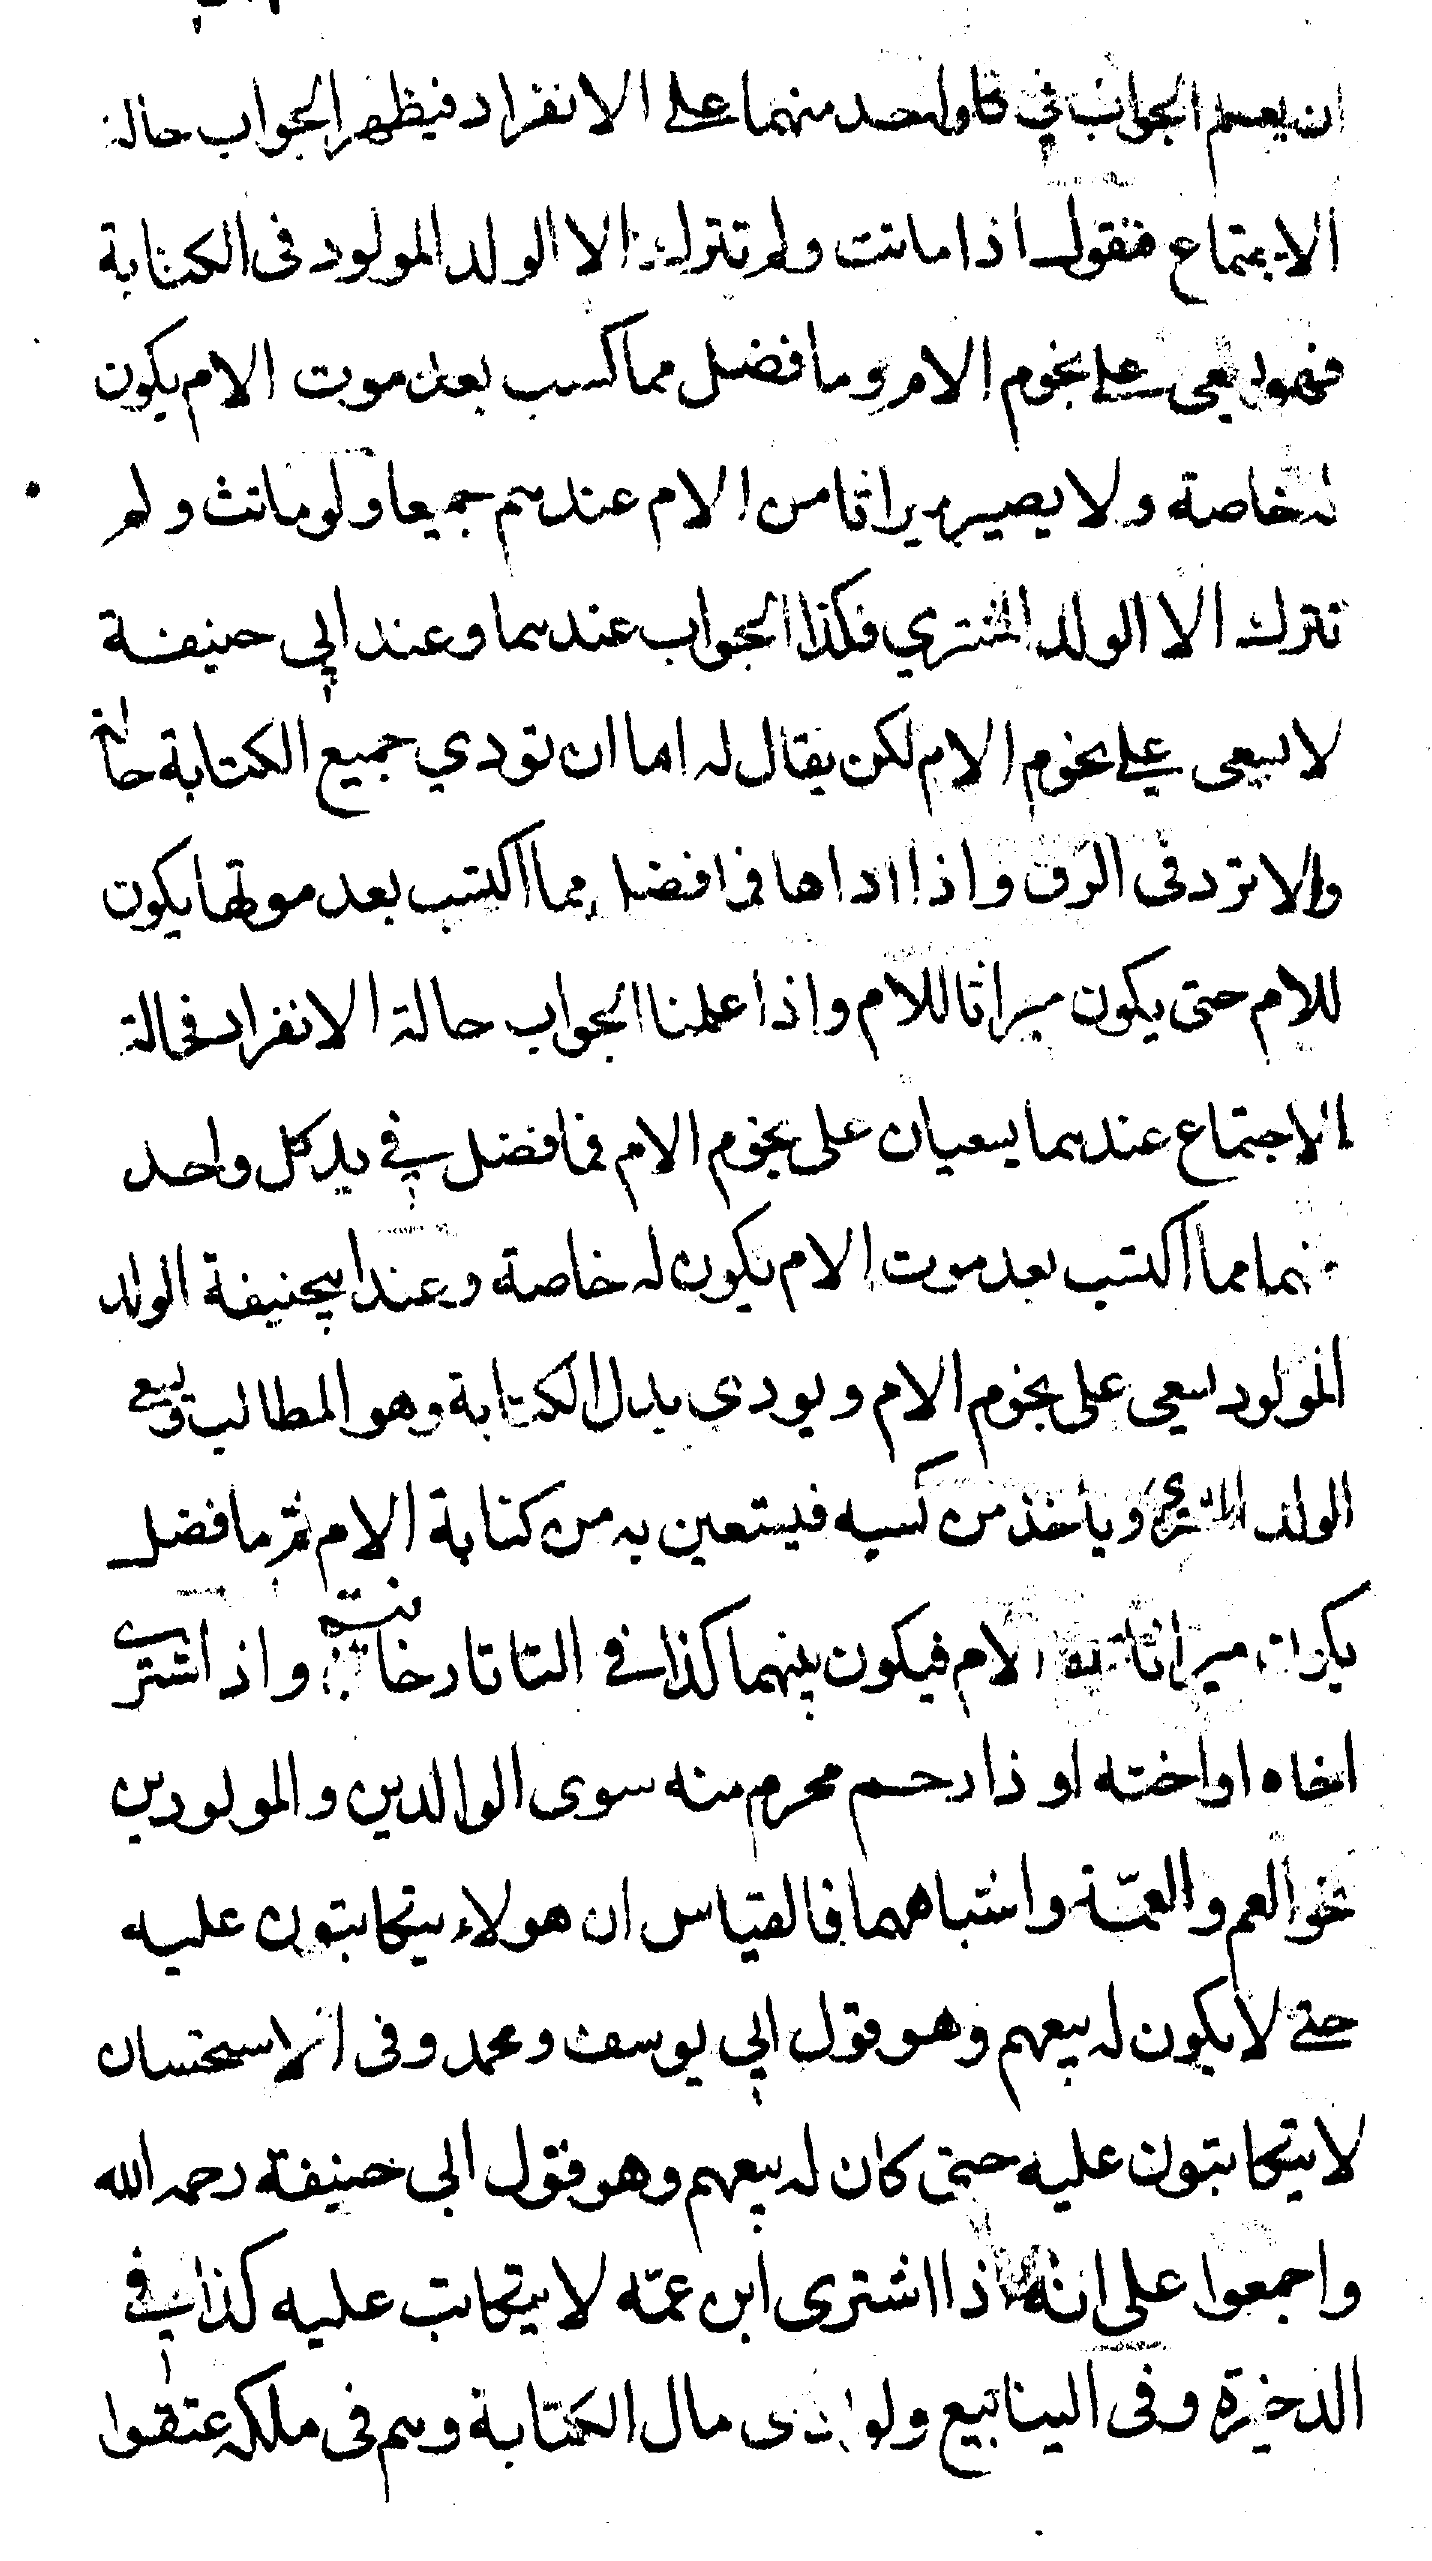 ان يعلم الجواب في كل واحد منهما على الانفراد فيظهر الجواب حالة
الاجتماع فنقول اذا ماتت ولم تترك الا الولد المولود فى الكتابة
فهو يسعى على نجوم الام وما فضل مما كسب بعد موت الام يكون
له خاصة ولا يصير ميراثا من الام عندهم جميعا ولو ماتت ولم
تترك الا الولد المشتري فكذا الجواب عندهما وعند ابي حنيفة
لا يسعى على نجوم الام لكن يقال له اما ان تودي جميع الكتابة حالة
والا ترد فى الرق واذا اداها فما فضل مما اكتسب بعد موتها يكون
للام حتى يكون ميراثا للام واذا علمنا الجواب حالة الانفراد فحالة
الاجتماع عندهما يسعيان على نجوم الام فما فضل في يد كل واحد
منهما مما اكتسب بعد موت الام يكون له خاصة وعند ابيحنيفة الولد
المولود يسعى على نجوم الام ويودى بدل الكتابة وهو المطالب وبيع
الولد المشترى وياخذ من كسبه فيستعين به من كتابة الام ثم ما فضل
يكون ميراثا الام فيكون بينهما كذا في التاتارخانية واذا اشترى
اخاه او اخته او ذا رحم محرم منه سوى الوالدين والمولودين
نحو العم والعمّة واشباههما فالقياس ان هولاء يتكاتبون عليه
حتى لا يكون له بيعهم وهو قول ابي يوسف ومحمد وفى الاستحسان
لا يتكاتبون عليه حتى كان له بيعهم وهو قول ابى حنيفة رحمه الله
واجمعوا على انه اذا اشترى ابن عمّه لا يتكاتب عليه كذا في
الذخيرة وفى الينابيع ولو ادى مال الكتابة وهم فى ملكه عتقوا